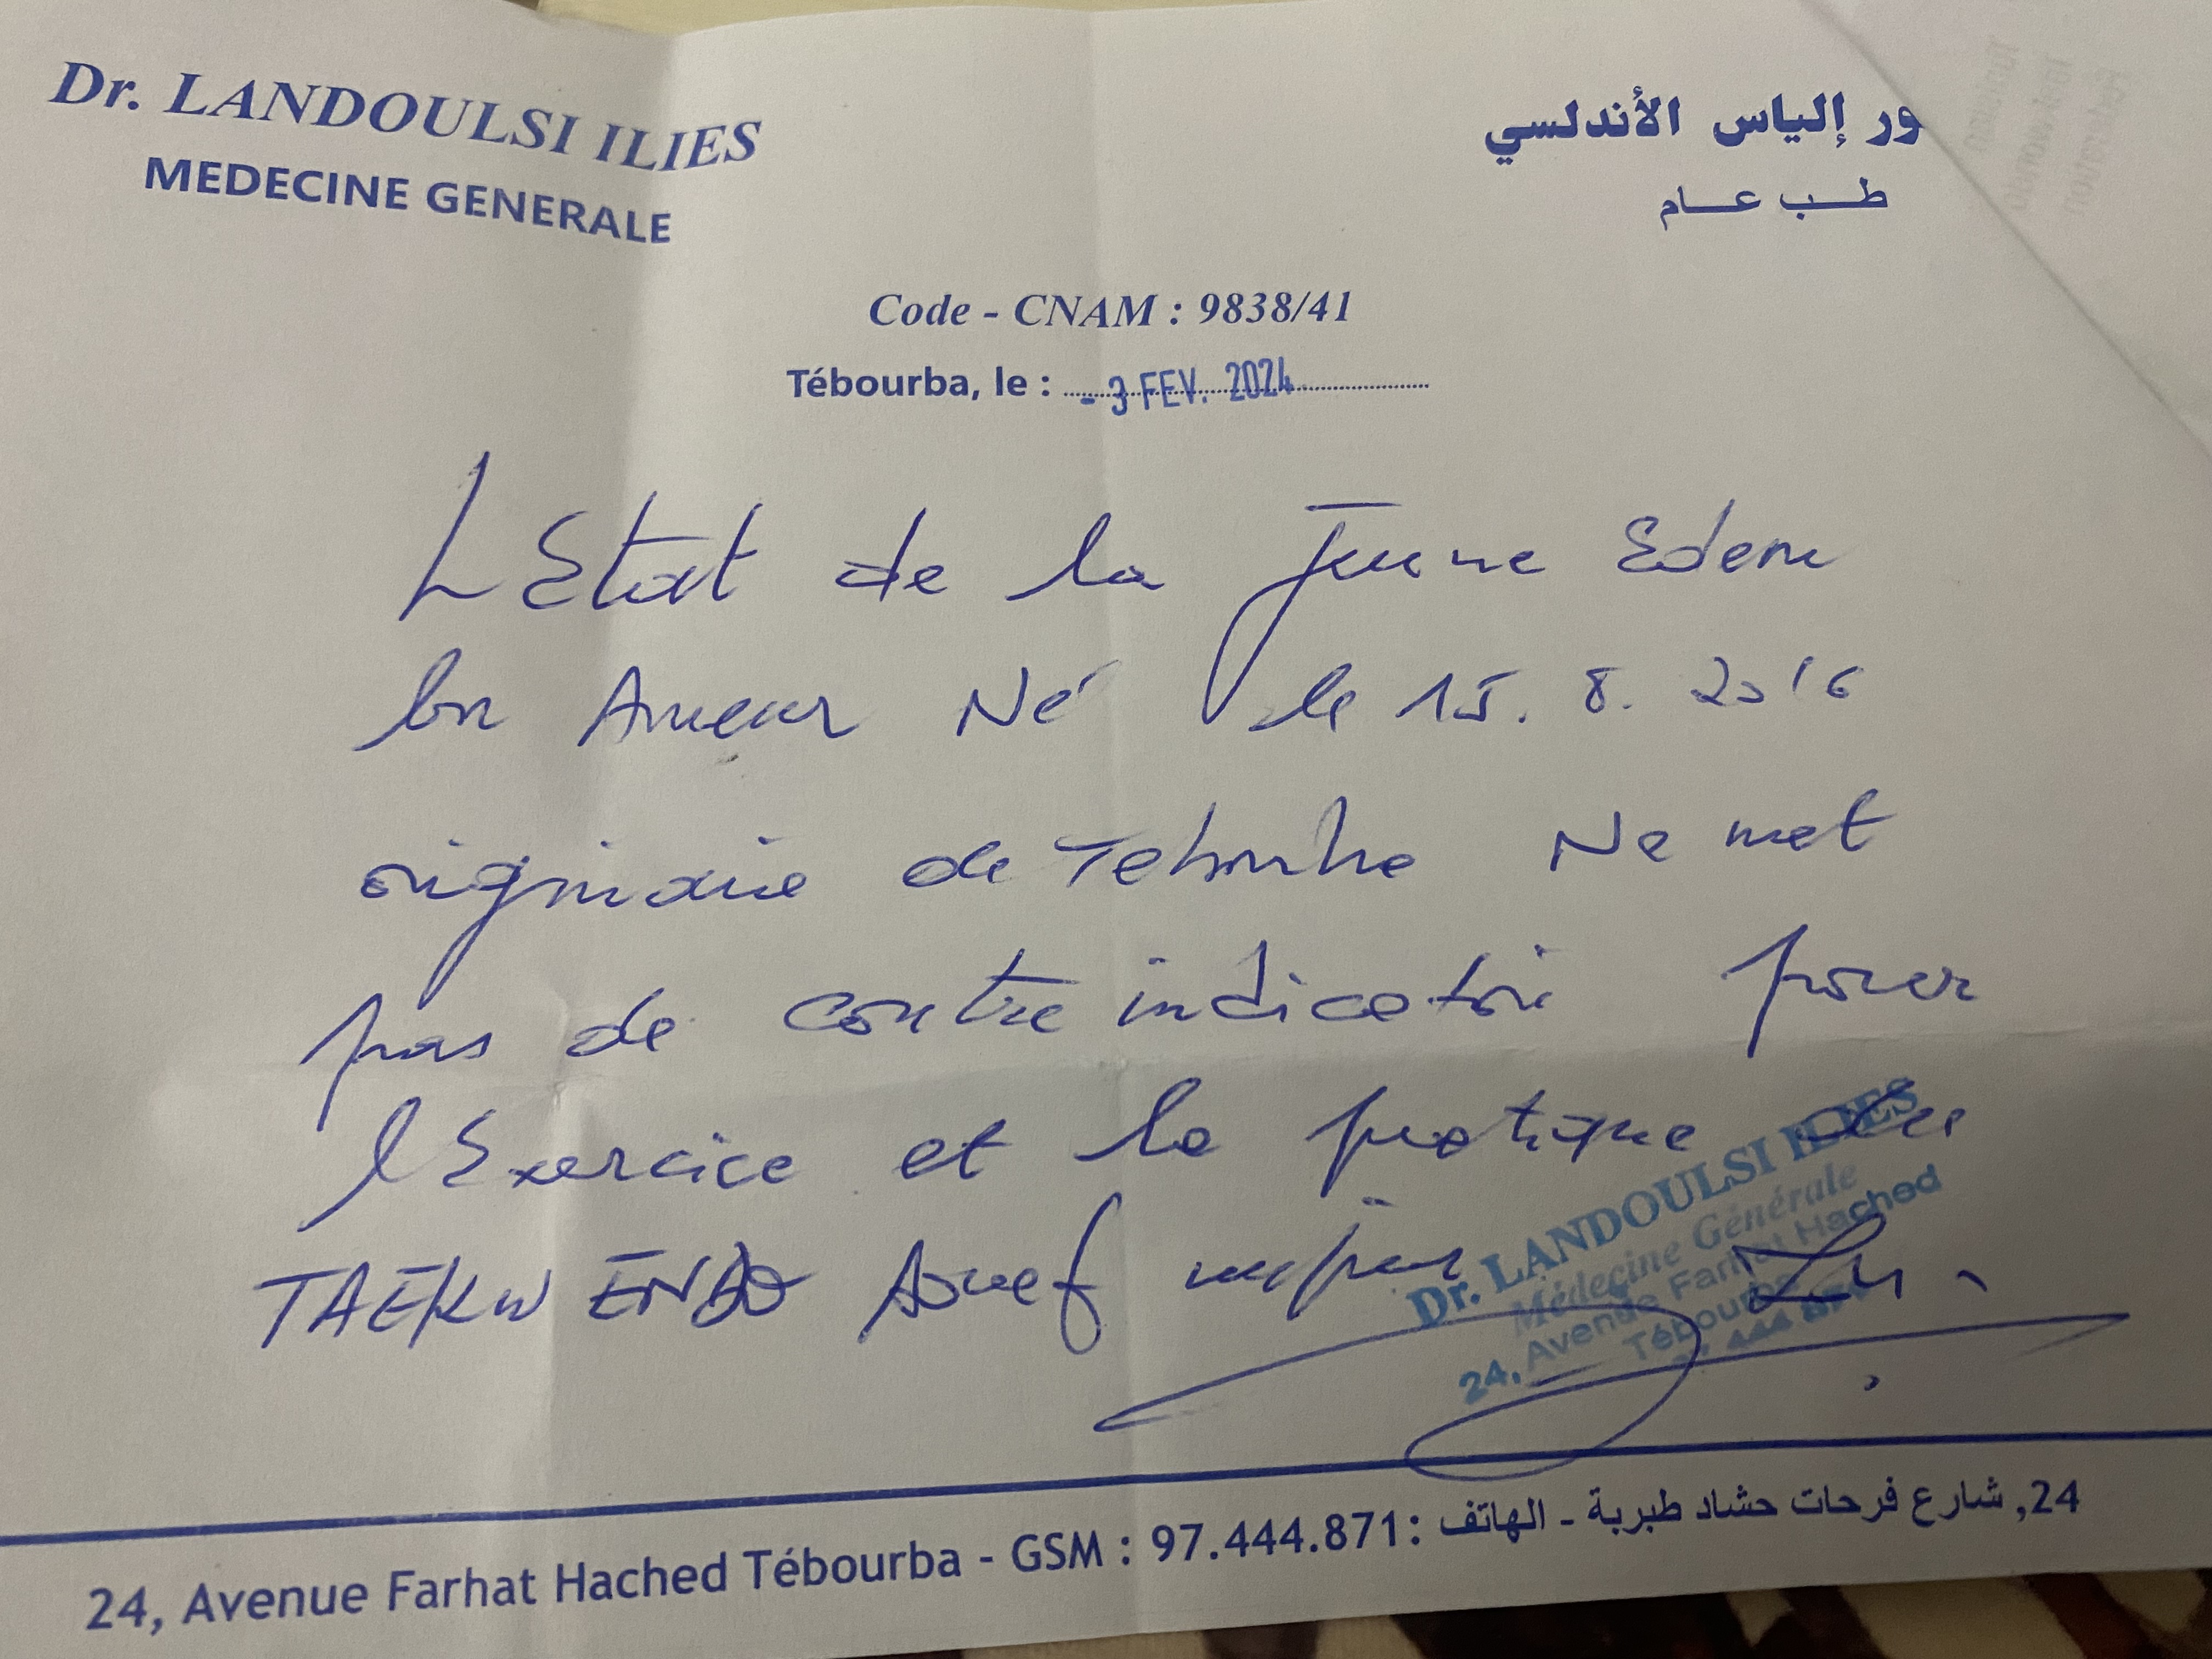 Dr. LANDOULSI ILIES
MEDECINE GENERALE
ور إلياس الأندلسي
طب عام
Code - CNAM : 9838/41
Tébourba, le : - 3 FEV. 2024
L'Etat de la jeune Edem
bn Ameur Né le 15. 8. 2016
originaire de Tebourba Ne met
pas de contre indication pour
l'Exercice et la pratique du
TAEKW ENDO
Dr. LANDOULSI ILIES
Médecine Générale
24, Avenue Farhat Hached
Tébourba
24, Avenue Farhat Hached Tébourba - GSM : 97.444.871: 24, شارع فرحات حشاد طبربة - الهاتف